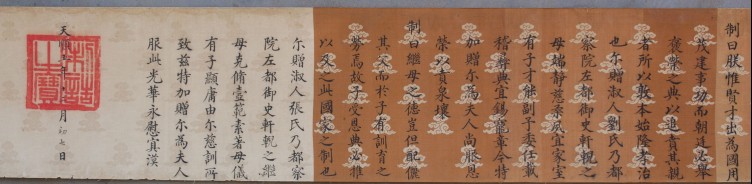 制曰朕惟賢才出為國用
茂建事功而朝廷必舉
褒榮之典以追賁其親
者所以敦本始隆孝治
也尔贈淑人劉氏乃都
察院左都御史軒輗之
母端靜慈柔夙宜家室
有子才能副予委任載
稽彝典宜錫寵章今特
加贈尔為夫人尚服恩
榮以賁泉壤
制曰繼母之德豈但配儷
其夫而於子有訓育之
勞焉故子受恩典必推
以及之此國家之制也
尔贈淑人張氏乃都察
院左都御史軒輗之繼
母克脩壼範素著母儀
有子顯庸由尔慈訓所
致茲特加贈尔為夫人
服此光華永慰冥漠
天順年月初七日
制誥之寶